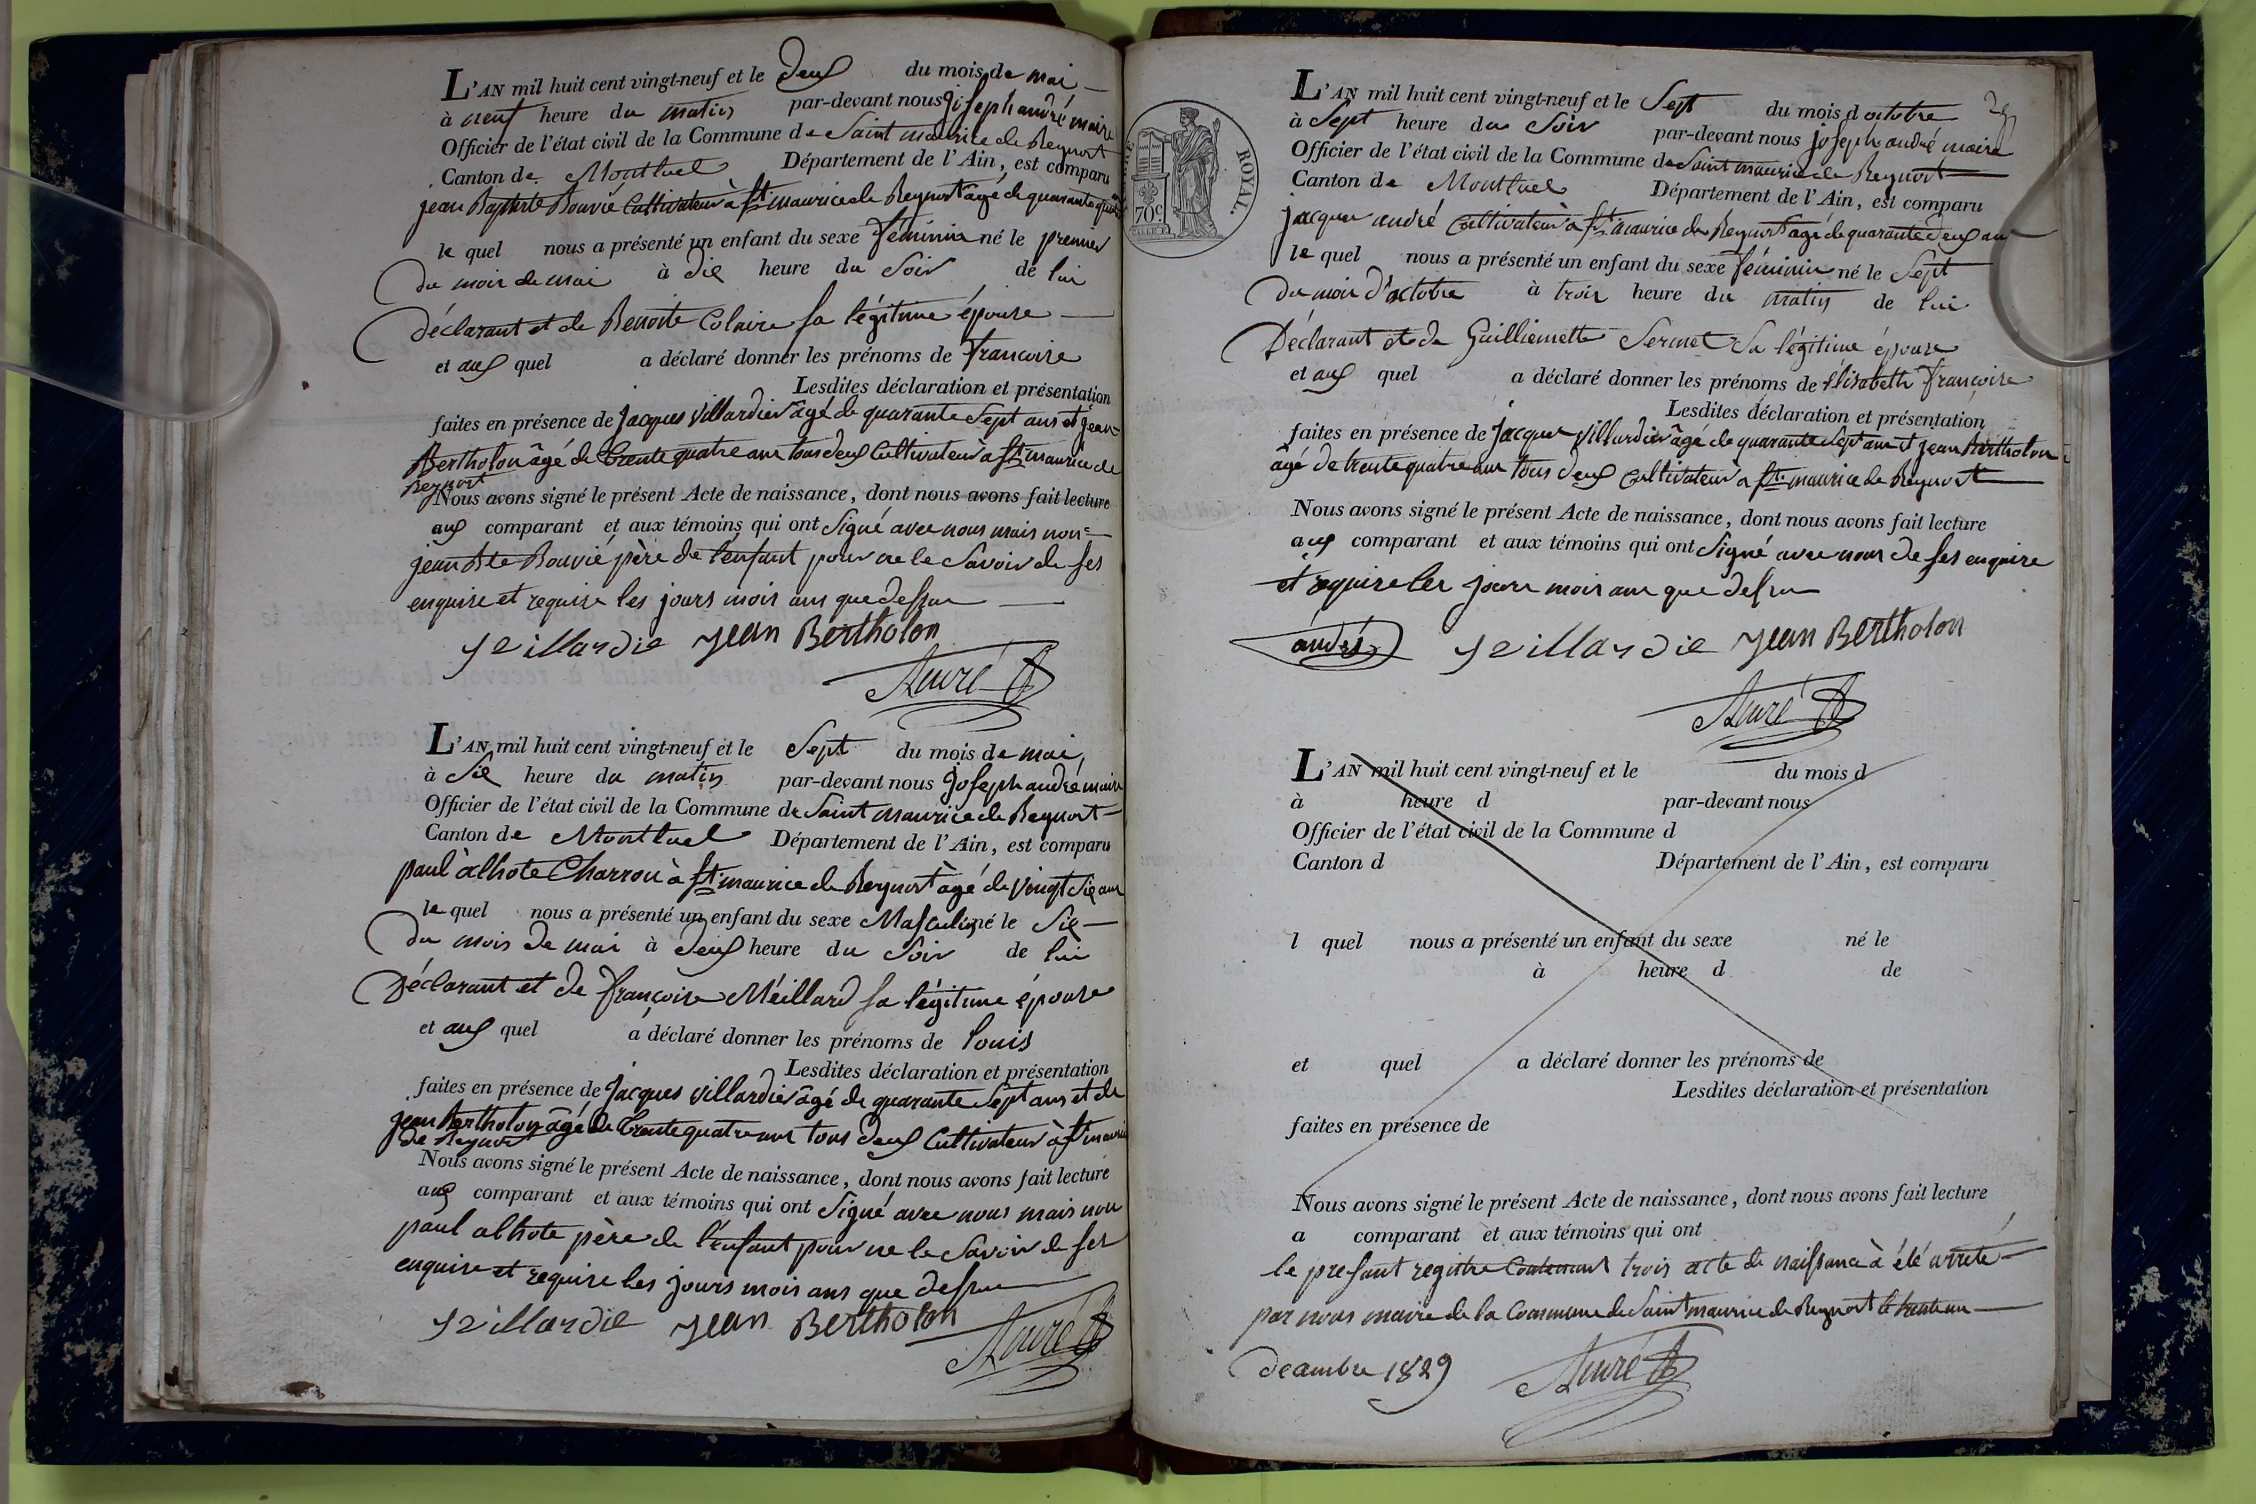 L'AN mil huit cent vingt-neuf et le deux du mois de mai
à neuf heure du matin par-devant nous joseph andré maire
Officier de l'état civil de la Commune de Saint maurice de Beynost
Canton de Montluel Département de l'Ain, est comparu
jean Baptiste Bouvié Cultivateur à St maurice de Beynost âgé de quarante
le quel nous a présenté un enfant du sexe féminin né le premier
du mois de mai à dix heure du Soir de lui
déclarant et de Benoite Colaire sa légitime épouse
et aux quel a déclaré donner les prénoms de francoise
Lesdites déclaration et présentation
faites en présence de jacques villardier âgé de quarante Sept ans et jean
Bertholon âgé de trente quatre ans tous deux Cultivateur à St maurice de
Beynost
Nous avons signé le présent Acte de naissance, dont nous avons fait lecture
aux comparant et aux témoins qui ont Signé avec nous mais non
jean Bte Bouvié père de l'enfant pour ne le Savoir de ses
enquise et requise les jours mois ans que dessus
Jvillardie jean Bertholon
André
L'AN mil huit cent vingt-neuf et le Sept du mois de mai,
à Six heure du matin par-devant nous joseph andré maire
Officier de l'état civil de la Commune de Saint maurice de Beynost
Canton de Montluel Département de l'Ain, est comparu
paul àlhote Charron à St maurice de Beynost âgé de vingt Six ans
le quel nous a présenté un enfant du sexe Masculin né le Six
du mois de mai à deux heure du Soir de lui
Déclarant et de françoise Méillard sa légitime épouse
et aux quel a déclaré donner les prénoms de louis
Lesdites déclaration et présentation
faites en présence de jacques villardier âgé de quarante Sept ans et de
jean Bertholon âgé de trente quatre ans tous deux Cultivateur à St maurice
de Beynost
Nous avons signé le présent Acte de naissance, dont nous avons fait lecture
aux comparant et aux témoins qui ont Signé avec nous mais non
paul alhote père de l'enfant pour ne le Savoir de ses
enquise et requise les jours mois ans que dessus
Jvillardie jean Bertholon André
ROYAL.
70c
L'AN mil huit cent vingt-neuf et le Sept du mois d octobre
à Sept heure du Soir par-devant nous joseph andré maire
Officier de l'état civil de la Commune de Saint maurice de Beynost
Canton de Montluel Département de l'Ain, est comparu
jacques andré Cultivateur à St maurice de Beynost âgé de quarante deux ans
le quel nous a présenté un enfant du sexe féminin né le Sept
du mois d'octobre à trois heure du matin de lui
Déclarant et de Guilliemette Sermet Sa légitime épouse
et aux quel a déclaré donner les prénoms de Elisabeth françoise
Lesdites déclaration et présentation
faites en présence de jacques villardier âgé de quarante Sept ans et jean Bertholon
âgé de trente quatre ans tous deux Cultivateur à St maurice de Beynost
Nous avons signé le présent Acte de naissance, dont nous avons fait lecture
aux comparant et aux témoins qui ont Signé avec nous de ses enquise
et requise les jours mois ans que dessus
andré Jvillardie jean Bertholon
André
L'AN mil huit cent vingt-neuf et le du mois d
à heure d par-devant nous
Officier de l'état civil de la Commune d
Canton d Département de l'Ain, est comparu
l quel nous a présenté un enfant du sexe né le
à heure d de
et quel a déclaré donner les prénoms de
Lesdites déclaration et présentation
faites en présence de
Nous avons signé le présent Acte de naissance, dont nous avons fait lecture
a comparant et aux témoins qui ont
le presant registre Contenant trois acte de naissance à été arreté
par nous maire de la Commune de Saint maurice de Beynost le trente un
decembre 1829 André